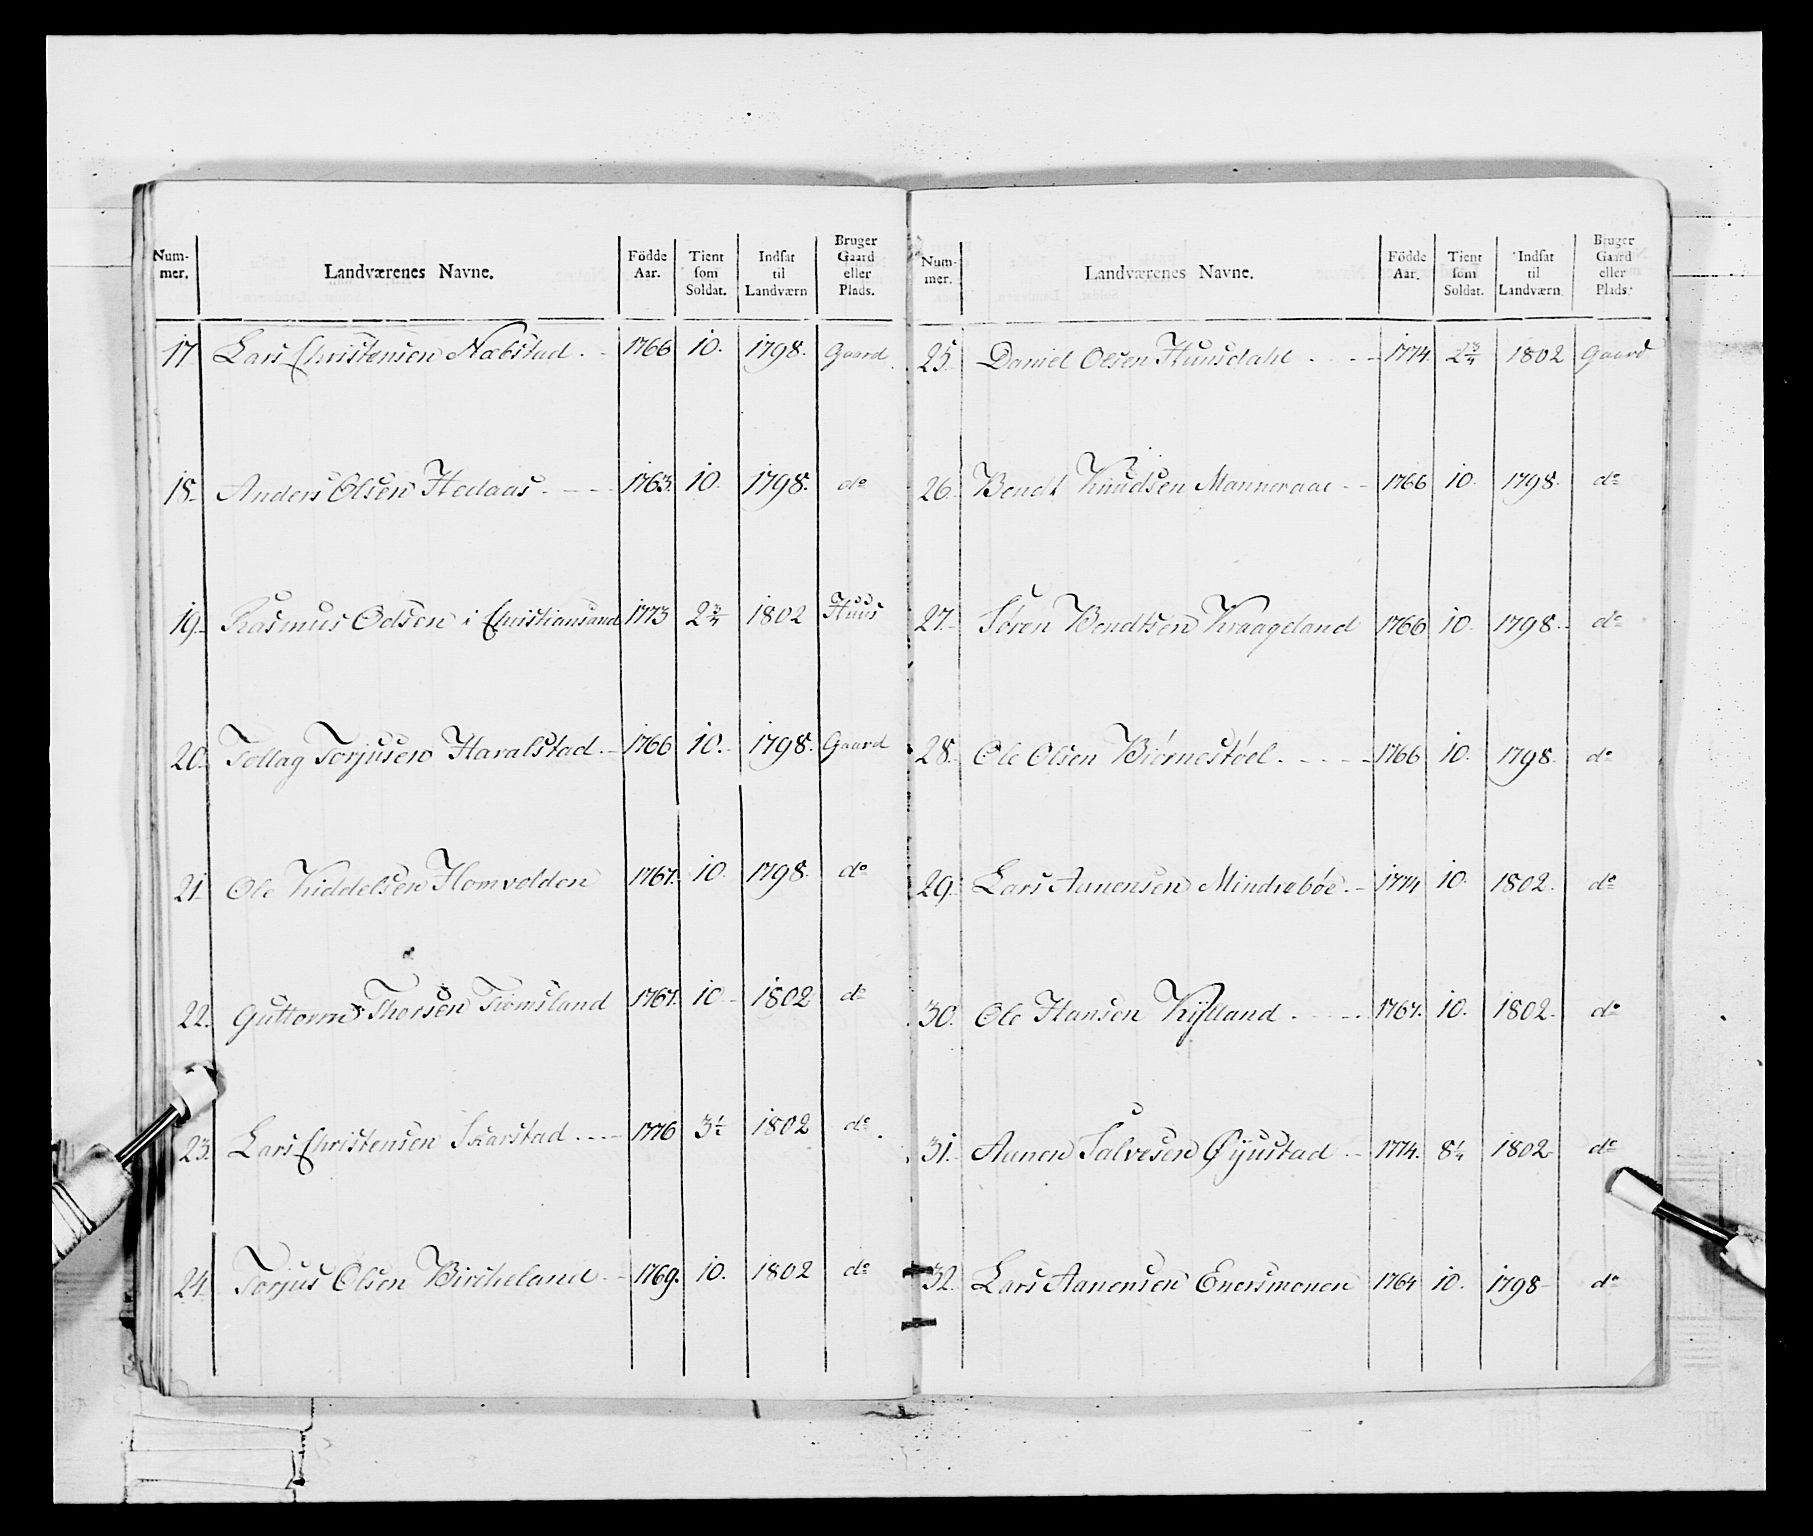 Num-
mer.
Landværenes Navne.
Fødde
Aar.
Tient
som
Soldat.
Indsat
til
Landværn
Bruger
Gaard
eller
Plads.
17 Lars Christensen Næbstad. 1766 10. 1798. Gaard
18. Anders Olsen Hedaas. 1763. 10. 1798. do
19. Rasmus Odsen i Christiansand 1773 2¾ 1802 Huus
20. Tellag Torjusen Haralstad. 1766 10. 1798. Gaard
21. Ole Kiddelsen Homvolden 1767. 10. 1798. do
22. Guttorm Thorsen Tromsland 1767. 10 1802 do
23. Lars Christensen Skarstad. 1776 3½ 1802 do
24. Torjus Olsen Bircheland. 1769. 10. 1802 do
Num-
mer.
Landværenes Navne.
Fødde
Aar.
Tient
som
Soldat.
Indsat
til
Landværn
Bruger
Gaard
eller
Plads.
25. Daniel Olsen Huusdahl 1774 2¾ 1802 Gaard
26. Bendt Knudsen Manneraae 1766 10. 1798. do
27. Søren Bendtsen Kraageland 1766 10. 1798. do
28. Ole Olsen Biørnestøel. 1766 10. 1798. do
29. Lars Aanensen Mindrebøe. 1774 10. 1802. do
30. Ole Hansen Kyßland 1767. 10. 1802. do
31. Aanon Salvesen Øyustad 1774. 8¼ 1802 do
32. Lars Aanensen Enersmonen 1764 10. 1798 do